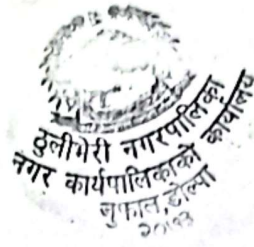 ठुलीभेरी नगरपालिका
नगर कार्यपालिकाको कार्यालय
दुनै, डोल्पा
२०७३